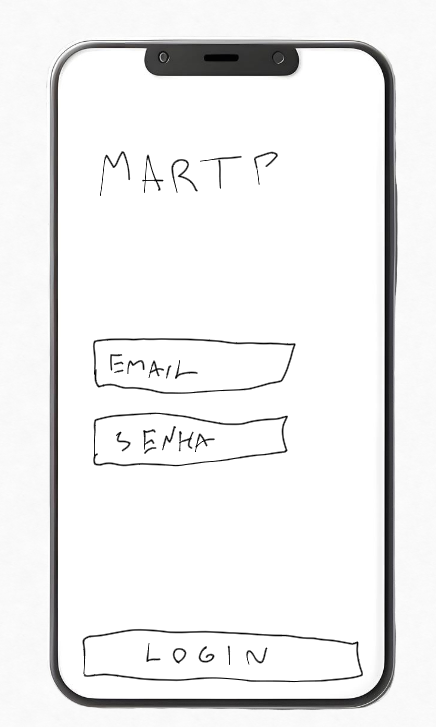 MARTP
EMAIL
SENHA
LOGIN